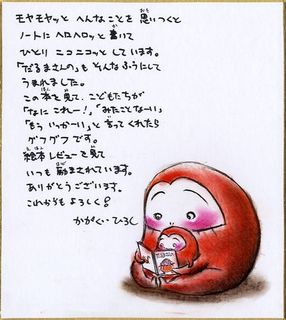 モヤモヤッと へんなことを 思いつくと
ノートに ヘロヘロッと 書いて
ひとり ニコニコッと しています。
「だるまさんの」も そんなふうにして
うまれました。
この本を見て、こどもたちが
「なに これー!」、「みたことなーい」
「もう いっかーい」、と 言ってくれたら
グフグフ です。
絵本レビューを見て
いつも 励まされています。
ありがとうございます。
これからも よろしく!
かがくい ひろし